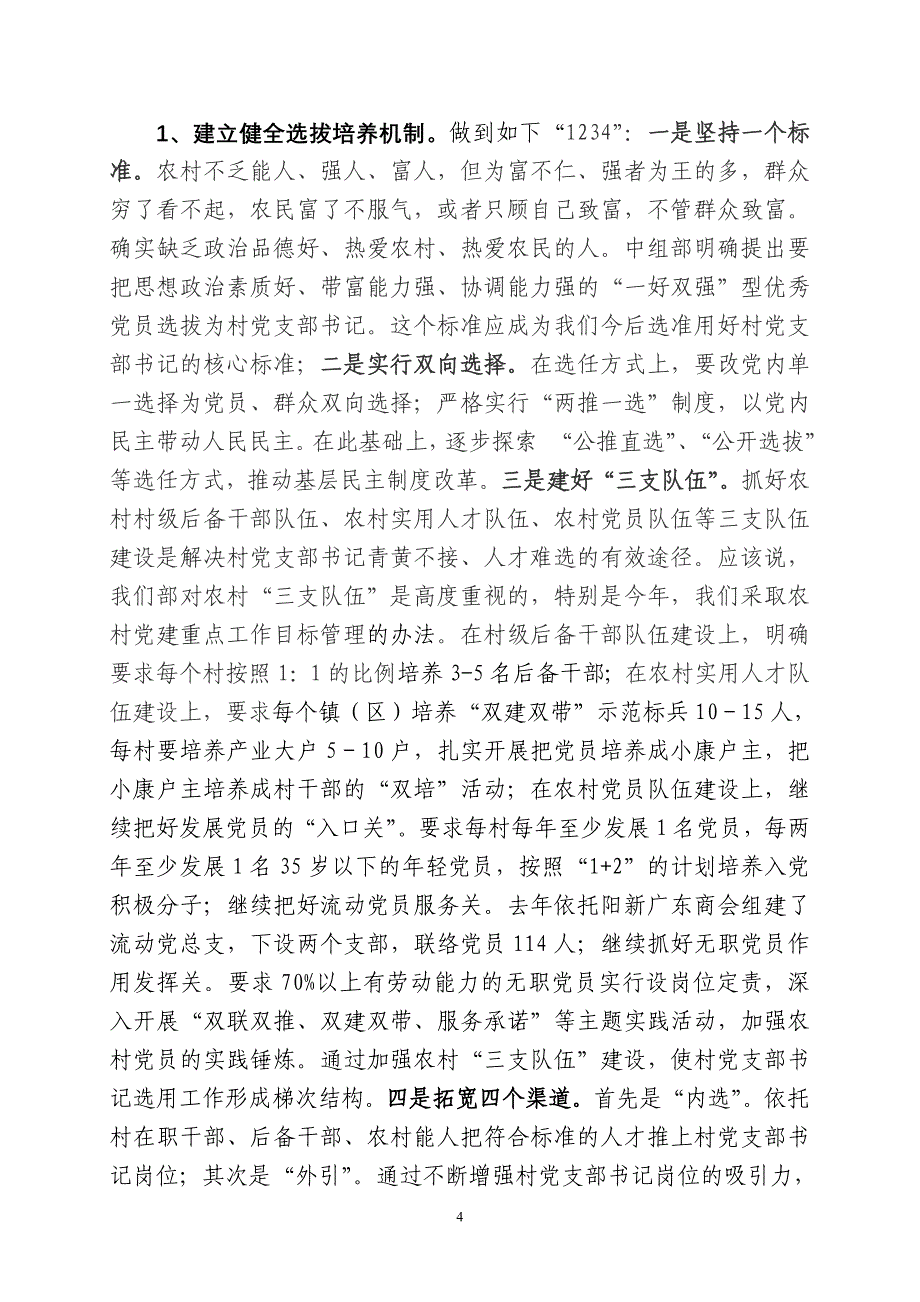 1、建立健全选拔培养机制。做到如下“1234”：一是坚持一个标
准。农村不乏能人、强人、富人，但为富不仁、强者为王的多，群众
穷了看不起，农民富了不服气，或者只顾自己致富，不管群众致富。
确实缺乏政治品德好、热爱农村、热爱农民的人。中组部明确提出要
把思想政治素质好、带富能力强、协调能力强的“一好双强”型优秀
党员选拔为村党支部书记。这个标准应成为我们今后选准用好村党支
部书记的核心标准；二是实行双向选择。在选任方式上，要改党内单
一选择为党员、群众双向选择；严格实行“两推一选”制度，以党内
民主带动人民民主。在此基础上，逐步探索 “公推直选”、“公开选拔”
等选任方式，推动基层民主制度改革。三是建好“三支队伍”。抓好农
村村级后备干部队伍、农村实用人才队伍、农村党员队伍等三支队伍
建设是解决村党支部书记青黄不接、人才难选的有效途径。应该说，
我们部对农村“三支队伍”是高度重视的，特别是今年，我们采取农
村党建重点工作目标管理的办法。在村级后备干部队伍建设上，明确
要求每个村按照1：1的比例培养3-5名后备干部；在农村实用人才队
伍建设上，要求每个镇（区）培养“双建双带”示范标兵10－15人，
每村要培养产业大户5－10户，扎实开展把党员培养成小康户主，把
小康户主培养成村干部的“双培”活动；在农村党员队伍建设上，继
续把好发展党员的“入口关”。要求每村每年至少发展1名党员，每两
年至少发展1名35岁以下的年轻党员，按照“1+2”的计划培养入党
积极分子；继续把好流动党员服务关。去年依托阳新广东商会组建了
流动党总支，下设两个支部，联络党员114人；继续抓好无职党员作
用发挥关。要求70%以上有劳动能力的无职党员实行设岗位定责，深
入开展“双联双推、双建双带、服务承诺”等主题实践活动，加强农
村党员的实践锤炼。通过加强农村“三支队伍”建设，使村党支部书
记选用工作形成梯次结构。四是拓宽四个渠道。首先是“内选”。依托
村在职干部、后备干部、农村能人把符合标准的人才推上村党支部书
记岗位；其次是“外引”。通过不断增强村党支部书记岗位的吸引力，
4